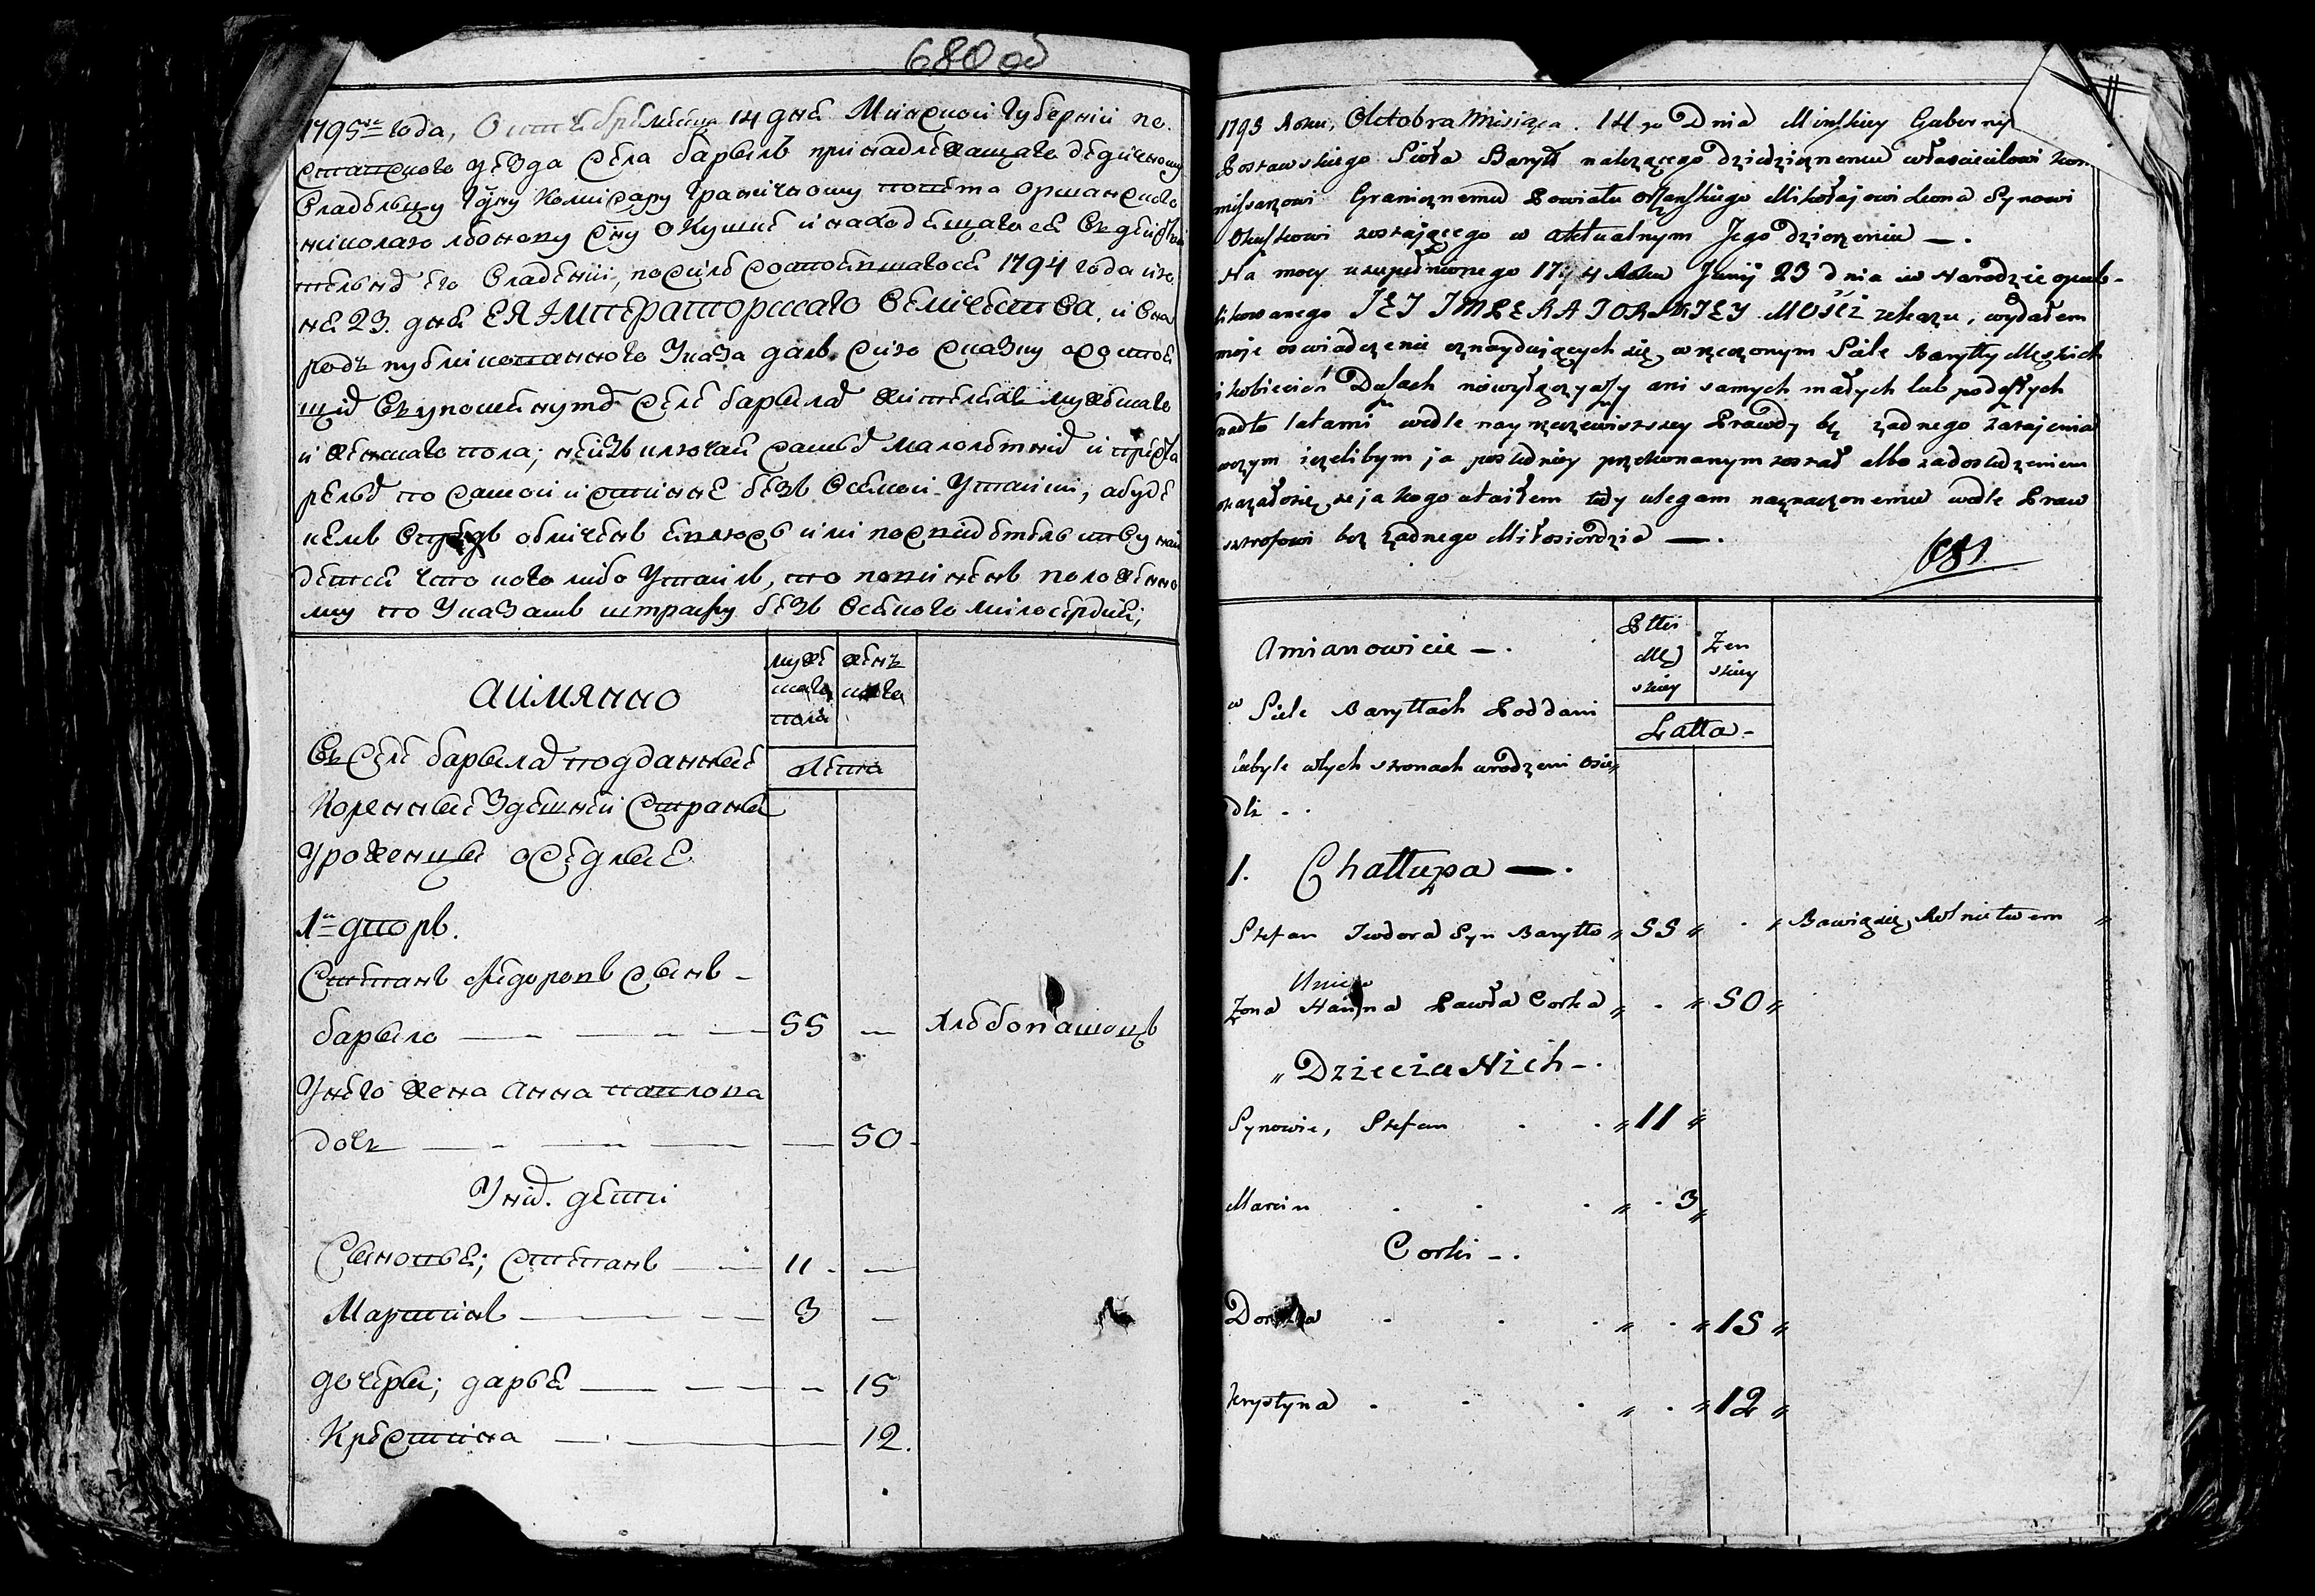 680 об
1795го года, Октября месяца 14 дня Минской губернии по-
ставского уезда села барылъ принадлежащаго дедичному
владельцу Гдну Комисару Граничному повета оршанского
николаю леонову сну окушке и находящагося въ действи
тельнѣ его владении, по силе состоявшагося 1794 года ию
ня 23. дня ЕЯ ИМПЕРАТОРСКАГО Величества, и в на
родъ публикованного Указа далъ сию сказку о состоя
щих въ упомянутом селе барылах жителяхъ мужескаго
и женскаго пола; не изъключая самых малолетних и преста
релых по самой истинне безъ всякой утайки, а буде
кемъ впредь обличенъ явлюсь или по свидетельству най
детса что кого либо утаилъ, то повиненъ положенно
му по Указамъ штрафу безъ всякого милосердия;
АИМЯННО
муже
скаго
пола
женъ
скаго
Въ селе барылах подданные
лета
Коренные здешней страны
Уроженцы оседлые
1й дворъ.
Степанъ Федоровъ сынъ
барыло 55 — хлебопашецъ
У него жена Анна павлова
дочь 50
У них. дети
Сыновья; Степанъ 11 —
Мартинъ 3 —
дочери; дарья 15
Крестина 12.
1795 Roku, Oktobra Miesiąca. 14 go Dnia Minskiey Guberny
Postawskiego Sioła Barył należącego dziedzicznemu właścicielowi kom
missarzowi Granicznemu Powiatu Orszanskiego Mikołajowi Leona Synowi
Okuszkowi zostającego w aktualnym Jego dzierżeniu —.
Na mocy uzupełnionego 1794 Roku Junij 23 dnia w Narodzie opub-
likowanego JEJ IMPERATORSKIEY MOŚCI rekazu, wydałem
moje oswiadczenie oznaydujących się w rzeczonym Siele Baryłły Męskich
i kobiecich Duszach niewyłączywszy ani samych małych lub podeszłych
nadto latami wedle nayrzeczewistszey Prawdy bez żadnego zatajenia
wczym ieżelibym ja posledniey przekonanym został albo zadosledzeniem
okazałosię że ja kogo utaiłem tedy ulegam naznaczonemu wedle Praw
sztrofowi bez żadnego Miłosierdzia —.
681
Amianowicie —.
Płci
Mę
skiey
Żen
skiey
w Siele Baryłłach Poddani
Latta -
iakyle wtych stronach urodzeni osie
dli . .
1. Chałłupa —.
Stefan Teodora Syn Baryłło 55 Bawiącsię Rolnictwem
U niego
Żona Hanna Pawła Corka 50
Dzieci u Nich -.
Synowie, Stefan 11
Marcin 3
Corki -.
Dorota 15
Krystyna 12